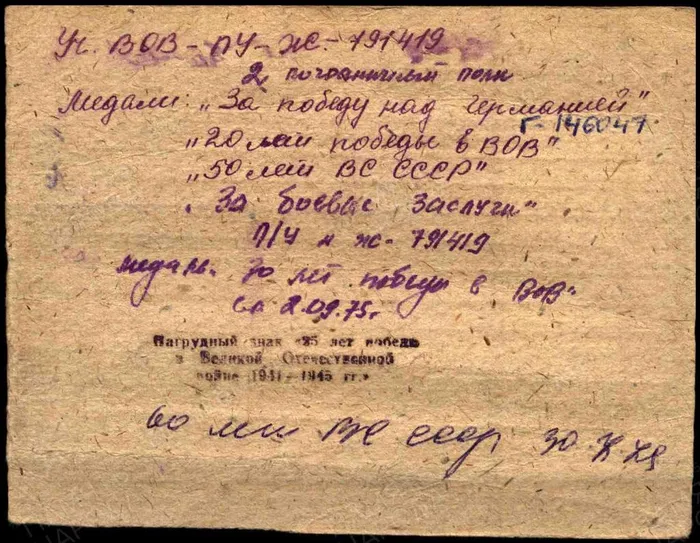 Уч. ВОВ - ПУ - Ж - 791419
2 пограничный полк
Медали: „За победу над Германией"
Г-146047
„20 лет победы в ВОВ"
„50 лет ВС СССР"
„За боевые заслуги"
П/У н Ж- 791419
медаль „30 лет победы в ВОВ"
2.09.75г.
Нагрудный знак «25 лет победы
в Великой Отечественной
войне 1941-1945 гг.»
60 лет ВС СССР 30